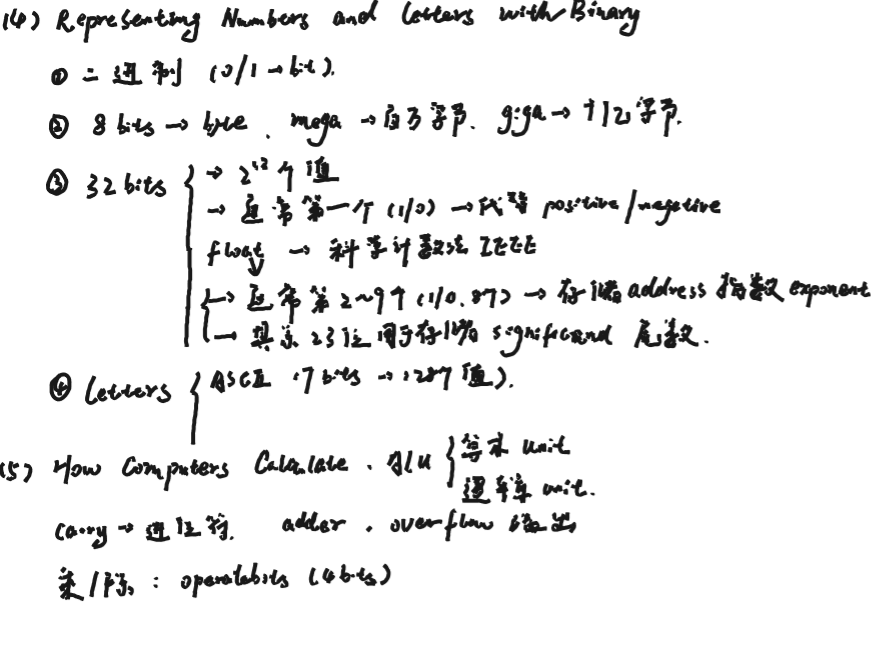 (4) Representing Numbers and Letters with Binary
① 二进制 (0/1→bit).
② 8 bits → byte. mega →百万字节. giga→ 十亿字节.
③ 32 bits → 2³² 个值
→ 通常第一个 (1/0) →代表 positive/negative
float → 科学计数法 IEEE
→ 通常第2~9个 (1/0, 8个) → 存储 address 指数 exponent
→ 其余23位用于存储 significand 尾数.
④ Letters ASCII (7 bits → 128个值).
(5) How Computers Calculate. ALU 算术 unit
逻辑 unit.
carry → 进位符. adder. overflow 溢出
乘/除: (4 bits)